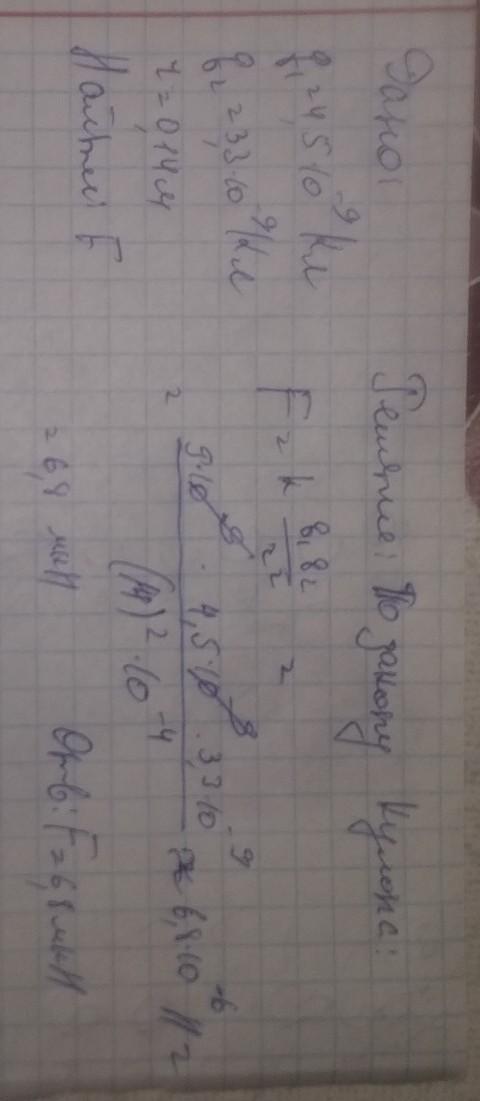 Дано:
q₁ = 4,5·10⁻⁹ Кл
q₂ = 3,3·10⁻⁹ Кл
r = 0,14 м
Найти: F
Решение: По закону Кулона:
F = k q₁q₂/r² =
= 9·10⁹ · 4,5·10⁻⁹ · 3,3·10⁻⁹ / (14)²·10⁻⁴ ≈ 6,8·10⁻⁶ Н =
= 6,8 мкН
Отв: F = 6,8 мкН